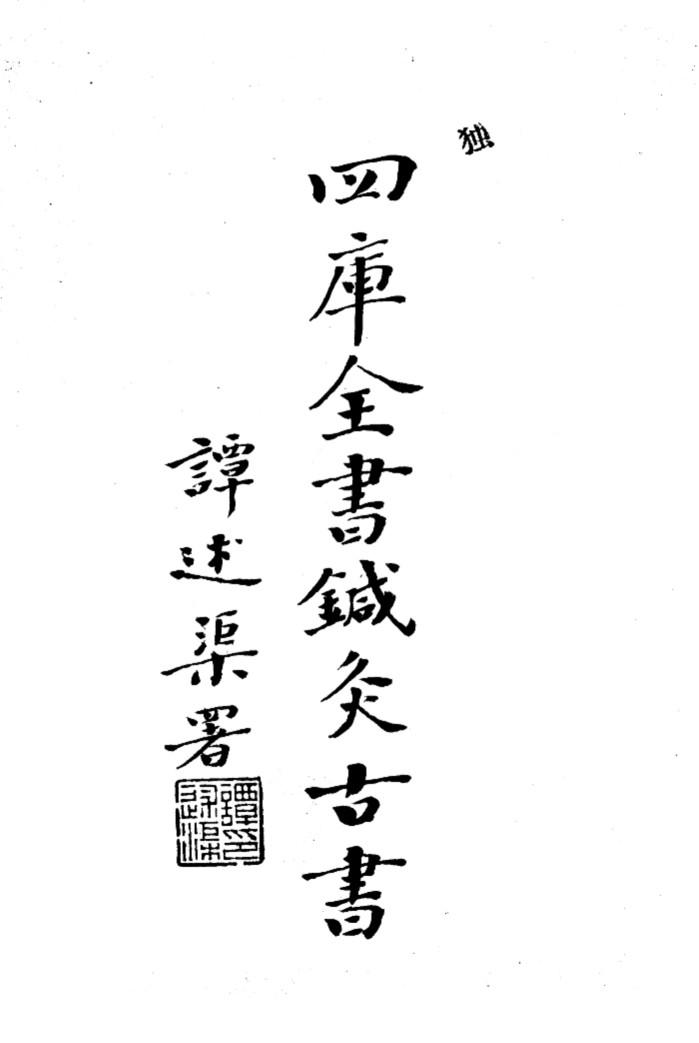 独
四庫全書鍼灸古書
譚述渠署
譚印述渠